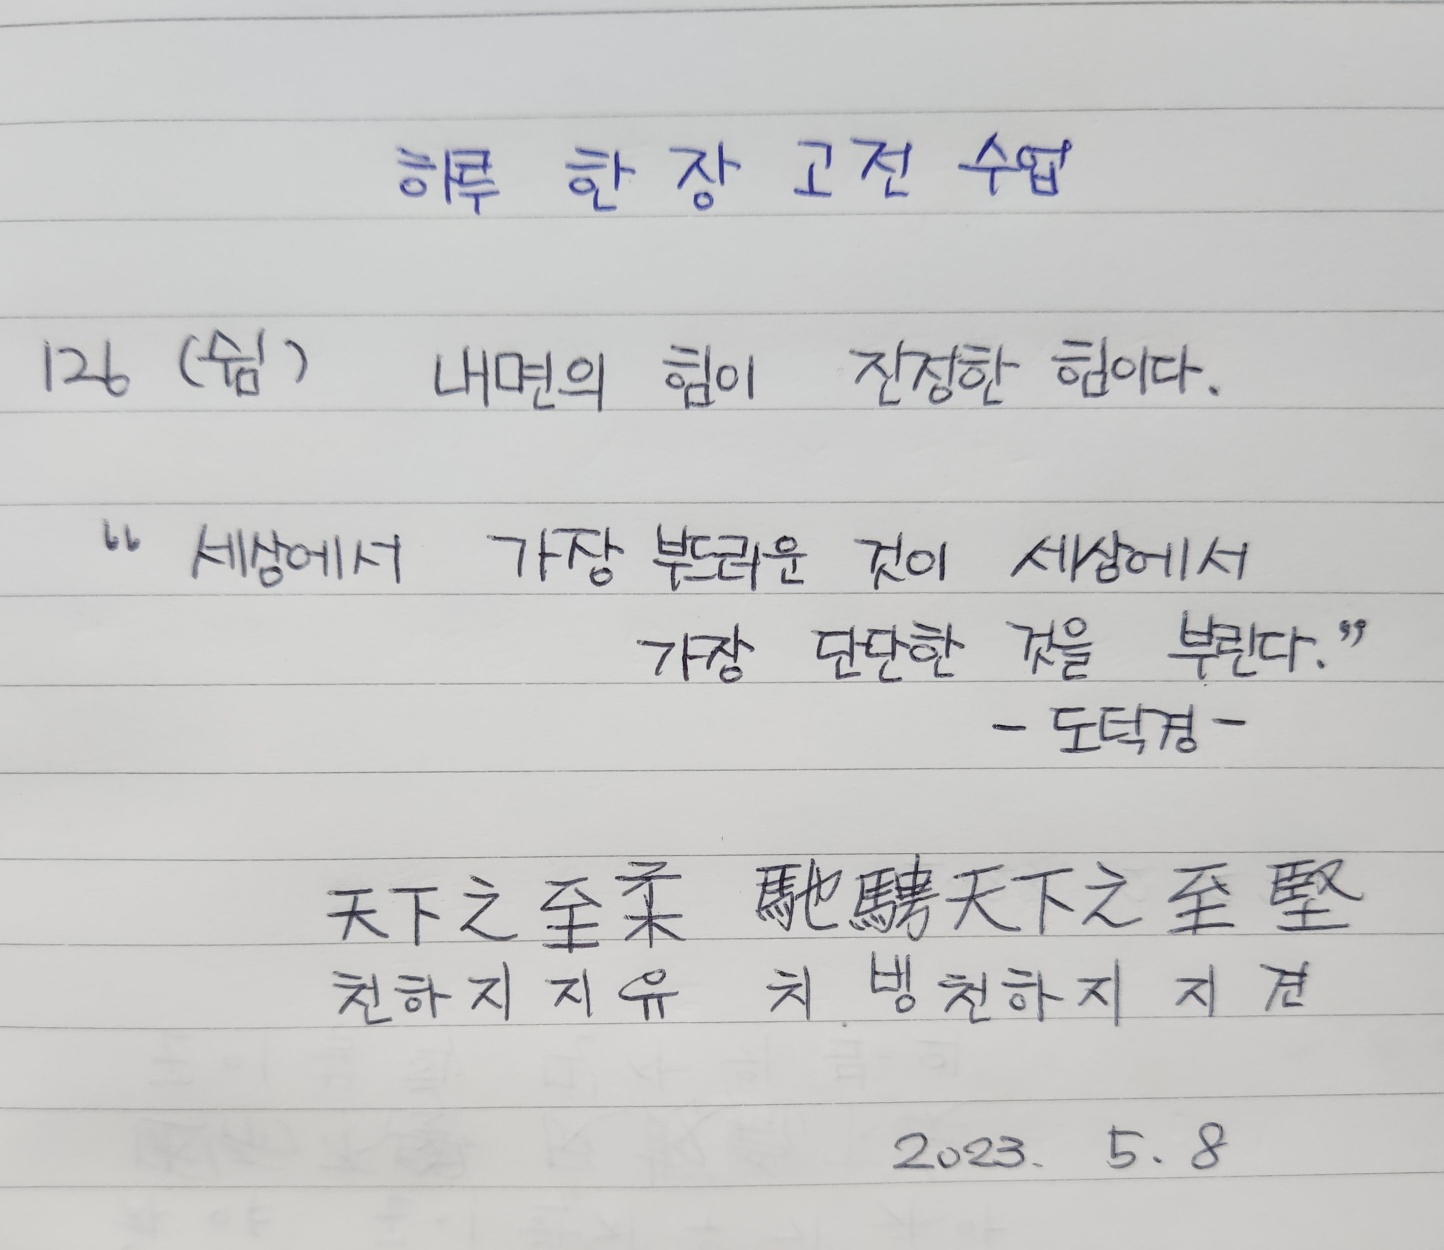 하루 한 장 고전 수업
126 (쉼) 내면의 힘이 진정한 힘이다.
“ 세상에서 가장 부드러운 것이 세상에서
가장 단단한 것을 부린다.”
- 도덕경 -
天下之至柔 馳騁天下之至堅
천하지지유 치빙천하지지견
2023. 5. 8